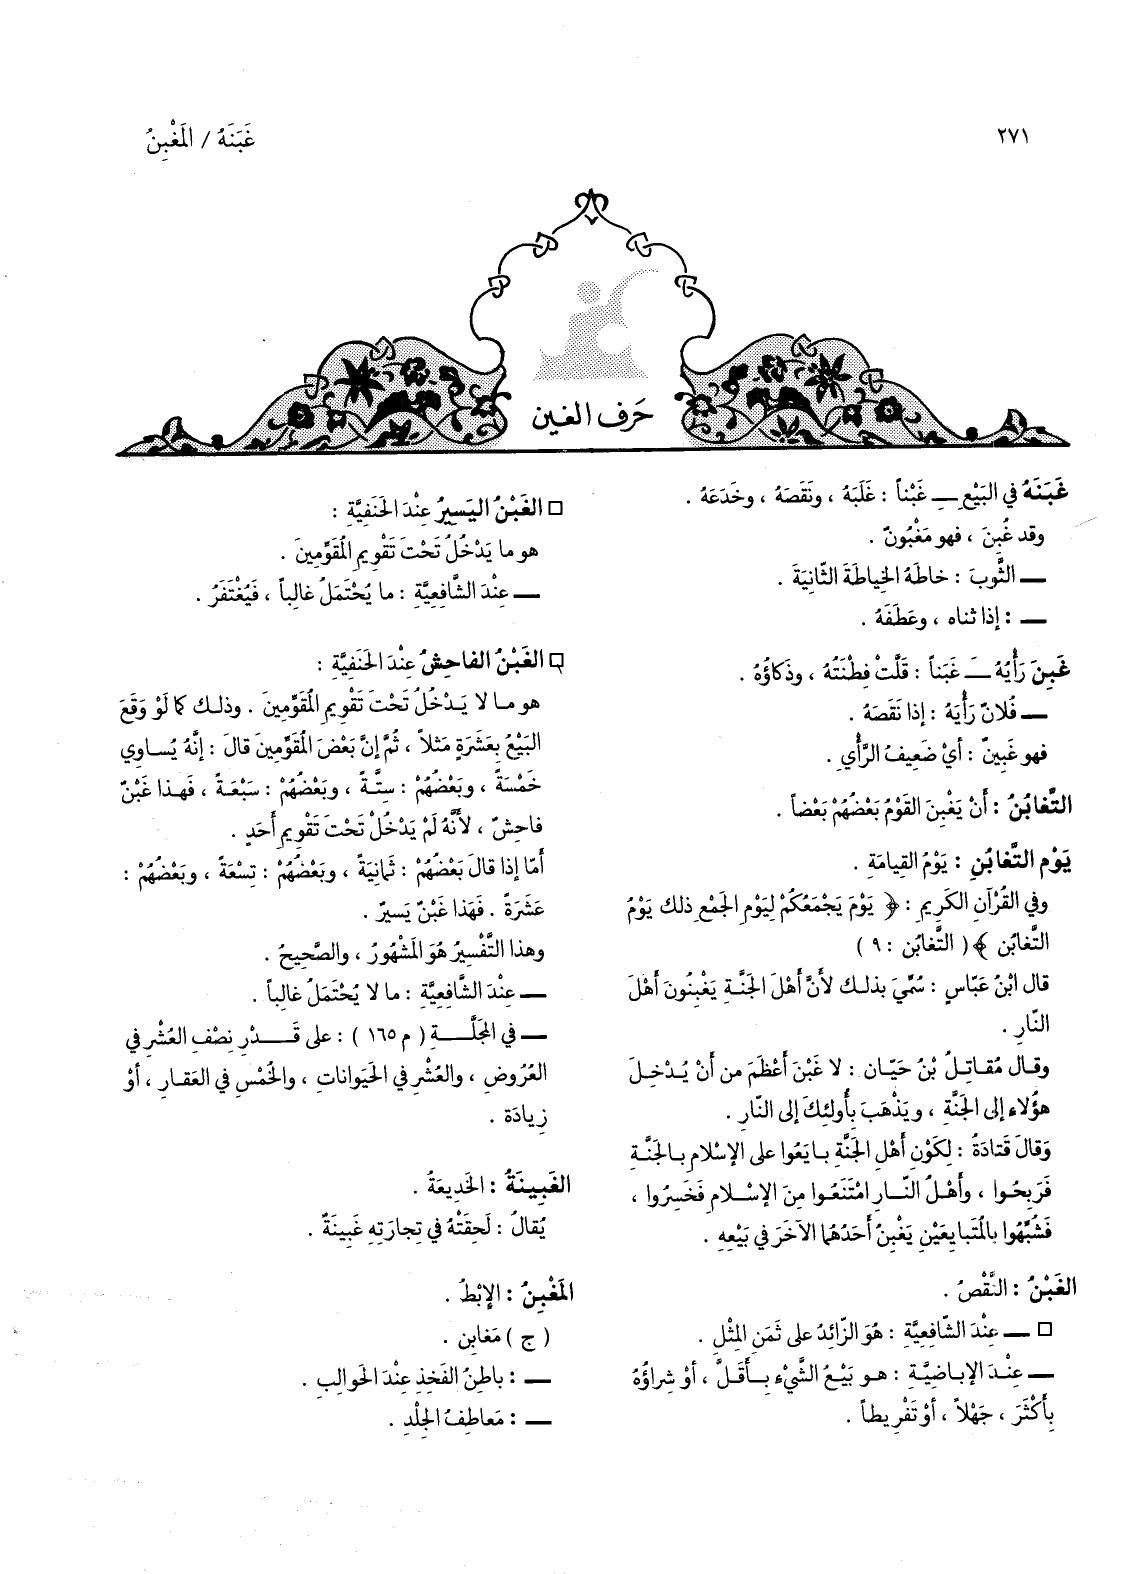 ٢٧١
غَبَنَهُ / المَغْبِنُ
حَرف الغين
غَبَنَهُ في البَيْعِ ــِـ غَبْناً : غَلَبَهُ ، ونَقَصَهُ ، وخَدَعَهُ .
وقد غُبِنَ ، فهو مَغْبُونٌ .
ــ الثَّوبَ : خاطَهُ الخِياطَةَ الثّانِيَةَ .
ــ : إذا ثناه ، وعَطَفَهُ .
غَبِنَ رَأْيُهُ ــَـ غَبَناً : قَلَّتْ فِطْنَتُهُ ، وذَكاؤُهُ .
ــ فُلانٌ رَأْيَهُ : إذا نَقَصَهُ .
فهو غَبِينٌ : أيْ ضَعِيفُ الرَّأْيِ .
التَّغابُنُ : أَنْ يَغْبِنَ القَوْمُ بَعْضُهُمْ بَعْضاً .
يَوْم التَّغابُنِ : يَوْمُ القِيامَةِ .
وفي القُرْآنِ الكَرِيمِ : ﴿ يَوْمَ يَجْمَعُكُمْ لِيَوْمِ الجَمْعِ ذلك يَوْمُ
التَّغابُنِ ﴾ ( التَّغابُن : ٩ )
قال ابْنُ عَبّاسٍ : سُمِّيَ بذلك لأَنَّ أَهْلَ الجَنَّةِ يَغْبِنُونَ أَهْلَ
النّارِ .
وقال مُقاتِلُ بْنُ حَيّان : لا غَبْنَ أَعْظَمَ من أَنْ يُدْخِلَ
هؤُلاء إلى الجَنَّةِ ، ويَذْهَبَ بِأُولئِكَ إلى النّارِ .
وَقالَ قَتادَةُ : لِكَوْنِ أَهْلِ الجَنَّةِ بايَعُوا على الإسْلامِ بالجَنَّةِ
فَرَبِحُوا ، وأَهْلُ النّارِ امْتَنَعُوا مِنَ الإسْلامِ فَخَسِرُوا ،
فَشُبِّهُوا بالمُتَبايِعَيْنِ يَغْبِنُ أَحَدُهُما الآخَرَ في بَيْعِهِ .
الغَبْنُ : النَّقْصُ .
□ ــ عِنْدَ الشّافِعِيَّةِ : هُوَ الزّائِدُ على ثَمَنِ المِثْلِ .
ــ عِنْدَ الإباضِيَّةِ : هو بَيْعُ الشَّيْءِ بِأَقَلَّ ، أَوْ شِراؤُهُ
بِأَكْثَرَ ، جَهْلاً ، أَوْ تَفْرِيطاً .
□ الغَبْنُ اليَسِيرُ عِنْدَ الحَنَفِيَّةِ :
هو ما يَدْخُلُ تَحْتَ تَقْوِيمِ المُقَوِّمِينَ .
ــ عِنْدَ الشّافِعِيَّةِ : ما يُحْتَمَلُ غالِباً ، فَيُغْتَفَرُ .
□ الغَبْنُ الفاحِشُ عِنْدَ الحَنَفِيَّةِ :
هو ما لا يَدْخُلُ تَحْتَ تَقْوِيمِ المُقَوِّمِينَ . وذلك كما لَوْ وَقَعَ
البَيْعُ بِعَشَرَةٍ مَثَلاً ، ثُمَّ إنَّ بَعْضَ المُقَوِّمِينَ قالَ : إنَّهُ يُساوِي
خَمْسَةً ، وبَعْضُهُمْ : سِتَّةً ، وبَعْضُهُمْ : سَبْعَةً ، فَهذا غَبْنٌ
فاحِشٌ ، لأَنَّهُ لَمْ يَدْخُلْ تَحْتَ تَقْوِيمِ أَحَدٍ .
أَمّا إذا قالَ بَعْضُهُمْ : ثَمانِيَةً ، وبَعْضُهُمْ : تِسْعَةً ، وبَعْضُهُمْ :
عَشَرَةً . فَهَذا غَبْنٌ يَسِيرٌ .
وهذا التَّفْسِيرُ هُوَ المَشْهُورُ ، والصَّحِيحُ .
ــ عِنْدَ الشّافِعِيَّةِ : ما لا يُحْتَمَلُ غالِباً .
ــ في المَجَلَّةِ ( م ١٦٥ ) : على قَدْرِ نِصْفِ العُشْرِ في
العُرُوضِ ، والعُشْرِ في الحَيَواناتِ ، والخُمْسِ في العَقارِ ، أَوْ
زِيادَة .
الغَبِينَةُ : الخَدِيعَةُ .
يُقالُ : لَحِقَتْهُ في تِجارَتِهِ غَبِينَةٌ .
المَغْبِنُ : الإبْطُ .
( ج ) مَغابِن .
ــ : باطِنُ الفَخِذِ عِنْدَ الحَوالِبِ .
ــ : مَعاطِفُ الجِلْدِ .